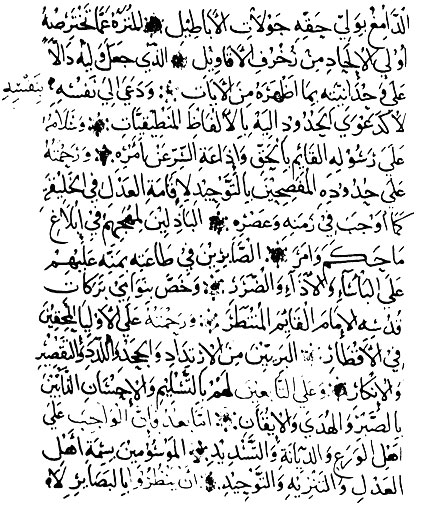 الدامغ بولي حقه جولات الاباطيل المنزه عما تخترصه
اولي الالحاد من زخرف الاقاويل الذي جعل وليه دالا
على وحدانيته بما اظهره من الايات ودعى الى نفسه
بنفسه
لا كدعوى الجدود اليه بالالفاظ المنطقيات وسلامه
على رسوله القائم بالحق واذاعة السر عن امره ورحمته
على حدوده المفصحين بالتوحيد لاقامة العدل في الخليقه
كما اوجب في زمنه وعصره الباذلين لمهجهم في ابلاغ
ما حكم وامر الصابرين في طاعته بمنه عليهم
على الباساء والاذاء والضرر وخص بنوامي بركات
قدسه الامام القائم المنتظر ورحمته على الاوليا المحقين
في الاقطار البريين من الارتداد والجحد واللدد والتقصير
والانكار وعلى التابعين لهم بالتسليم والاحسان الدائنين
بالصبر والهدى والايقان اما بعد فان الواجب على
اهل الورع والديانة والتسديد الموسومين بسمة اهل
العدل والتنزيه والتوحيد ان ينظروا بالبصاير لا